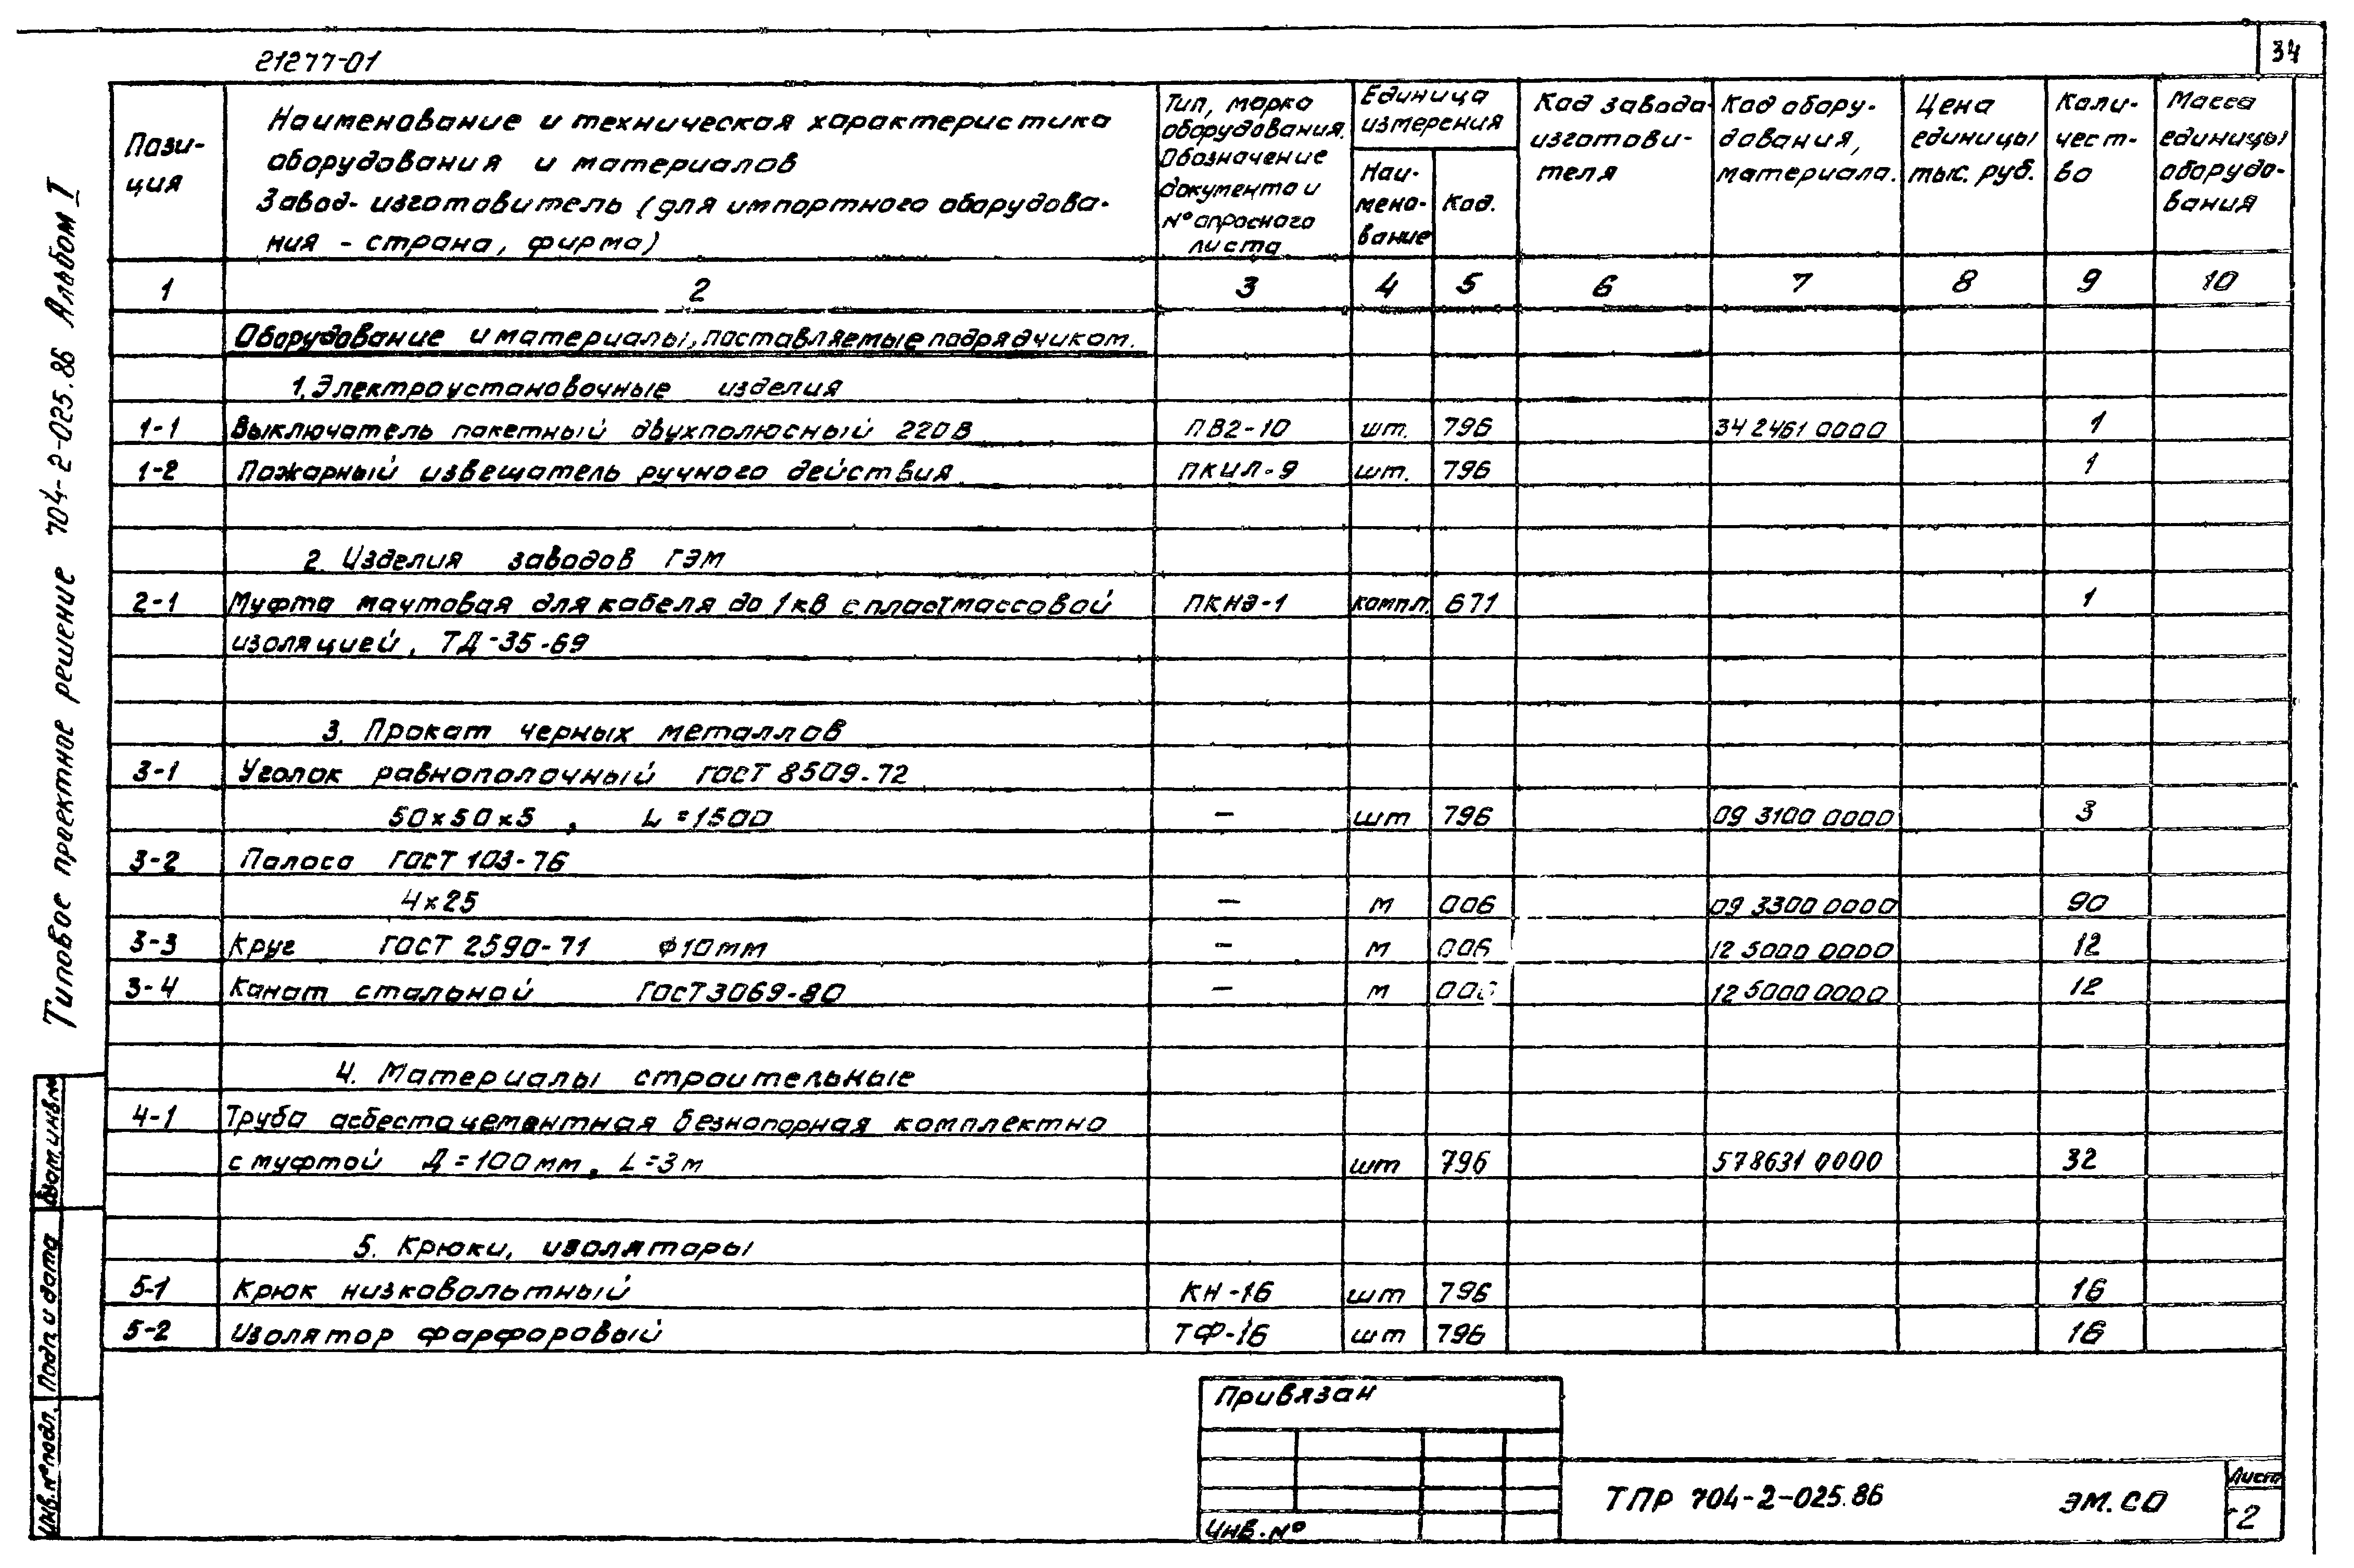 34
21277-01
Типовое проектное решение 704-2-025.86 Альбом I
Пози-
ция
Наименование и техническая характеристика
оборудования и материалов
Завод-изготовитель (для импортного оборудова-
ния - страна, фирма)
Тип, марка
оборудования.
Обозначение
документа и
№ опросного
листа
Единица
измерения
Наи-
мено-
вание
Код.
Код завода-
изготови-
теля
Код обору-
дования,
материала.
Цена
единицы
тыс. руб.
Коли-
чест-
во
Масса
единицы
оборудо-
вания
1 2 3 4 5 6 7 8 9 10
Оборудование и материалы, поставляемые подрядчиком.
1. Электроустановочные изделия
1-1 Выключатель пакетный двухполюсный 220В ПВ2-10 шт. 796 34 2461 0000 1
1-2 Пожарный извещатель ручного действия ПКИЛ-9 шт. 796 1
2. Изделия заводов ГЭМ
2-1 Муфта мачтовая для кабеля до 1кВ с пластмассовой ПКНЭ-1 компл. 671 1
изоляцией, ТД-35-69
3. Прокат черных металлов
3-1 Уголок равнополочный ГОСТ 8509-72
50×50×5, L=1500 — шт 796 09 3100 0000 3
3-2 Полоса ГОСТ 103-76
4×25 — м 006 09 3300 0000 90
3-3 Круг ГОСТ 2590-71 ф10мм — м 006 12 5000 0000 12
3-4 Канат стальной ГОСТ 3069-80 — м 006 12 5000 0000 12
4. Материалы строительные
4-1 Труба асбестоцементная безнапорная комплектно
с муфтой Д=100мм, L=3м шт 796 578631 0000 32
5. Крюки, изоляторы
5-1 Крюк низковольтный КН-16 шт 796 16
5-2 Изолятор фарфоровый ТФ-16 шт 796 16
Взам.инв.№
Подп. и дата
Инв.№ подл.
Привязан
Инв.№
ТПР 704-2-025.86 ЭМ.СО
Лист
2